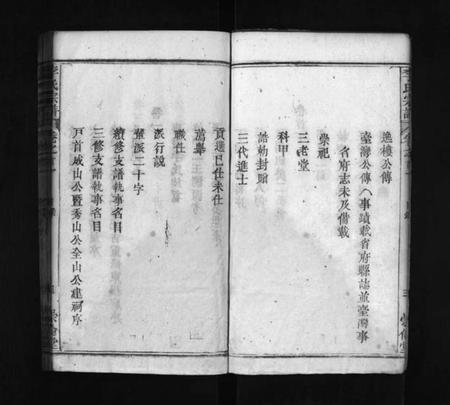 逸樓公傳
臺灣公傳 事蹟載省府縣誌並臺灣事
省府志未及備載
崇祀
三老堂
科甲
誥勅封贈
三代進士
貢選已仕未仕
薦舉
職仕
派行說
輩派二十字
續修支譜執事名目
三修支譜執事名目
戸首威山公暨秀山公全山公建祠序